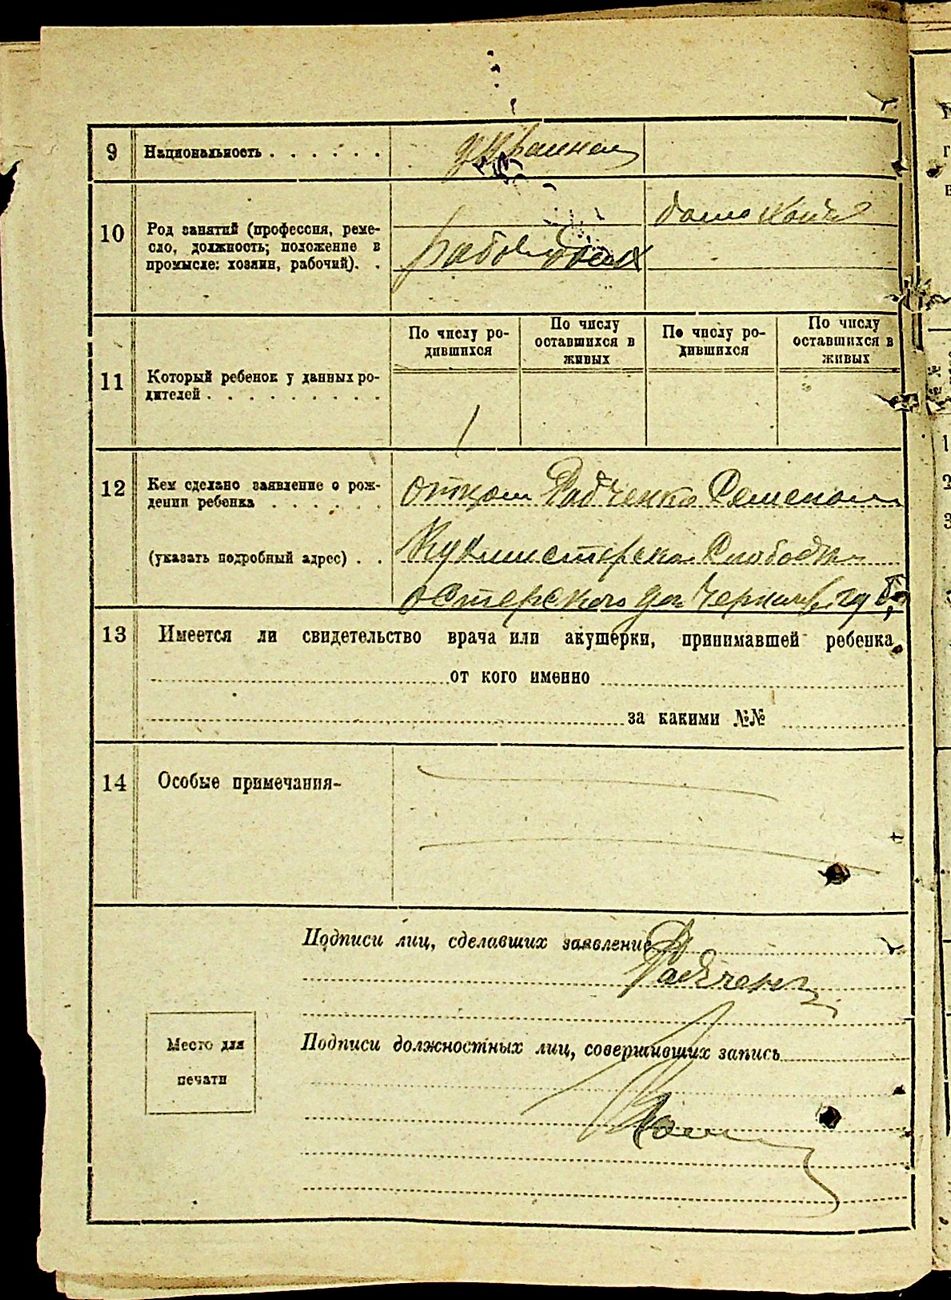 9 Национальность . . . . . .
10 Род занятий (профессия, реме-
сло, должность; положение в
промысле: хозяин, рабочий). .
рабочий
11 Который ребенок у данных ро-
дителей . . . . . . . . .
По числу ро-
дившихся
По числу
оставшихся в
живых
По числу ро-
дившихся
По числу
оставшихся в
живых
1
12 Кем сделано заявление о рож-
дении ребенка . . . . . . .
отцом Радченко Семеном
(указать подробный адрес) . .
Кухмистерская Слободка
Остерского
13 Имеется ли свидетельство врача или акушерки, принимавшей ребенка
от кого именно
за какими №№
14 Особые примечания-
Подписи лиц, сделавших заявление
Радченко
Место для
печати
Подписи должностных лиц, совершивших запись